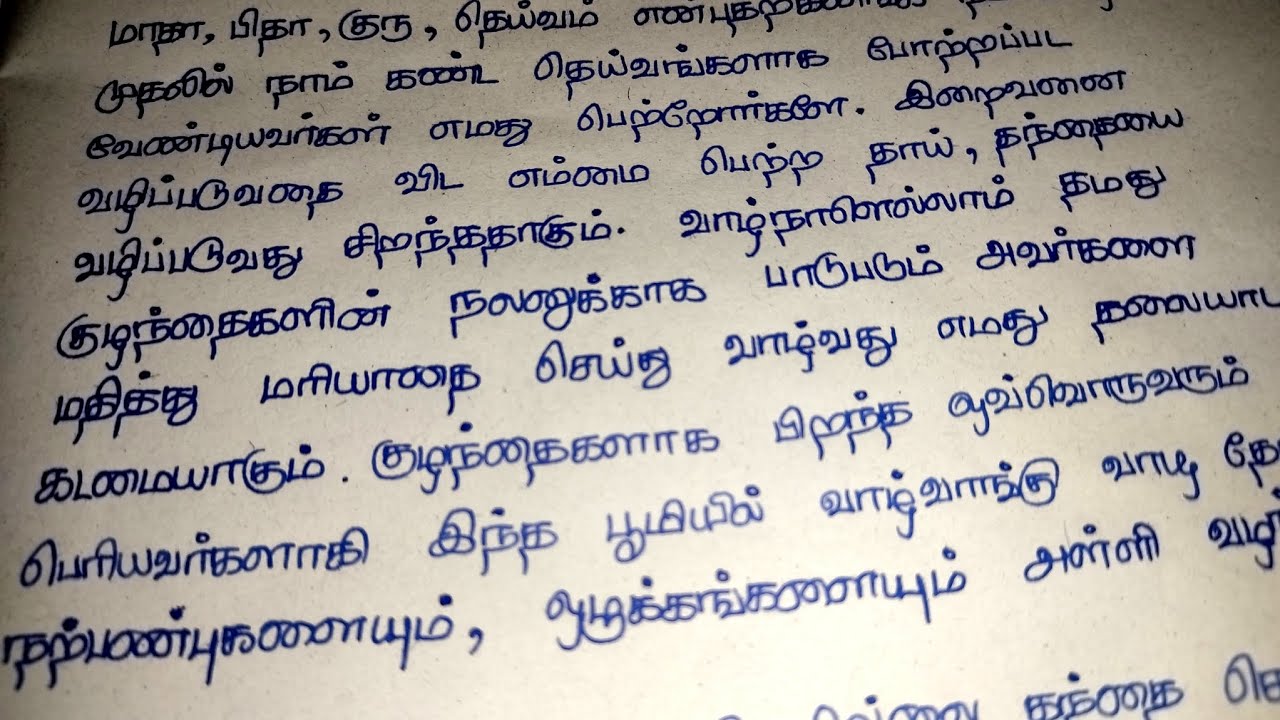 மாதா, பிதா, குரு, தெய்வம்
முதலில் நாம் கண்ட தெய்வங்களாக போற்றப்பட
வேண்டியவர்கள் எமது பெற்றோர்களே. இறைவனை
வழிப்படுவதை விட எம்மை பெற்ற தாய், தந்தையை
வழிப்படுவது சிறந்ததாகும். வாழ்நாளெல்லாம் தமது
குழந்தைகளின் நலனுக்காக பாடுபடும் அவர்களை
மதித்து மரியாதை செய்து வாழ்வது எமது தலையாய
கடமையாகும். குழந்தைகளாக பிறந்த ஒவ்வொருவரும்
பெரியவர்களாகி இந்த பூமியில் வாழ்வாங்கு வாழ
நற்பண்புகளையும், ஒழுக்கங்களையும் அள்ளி
தந்தை